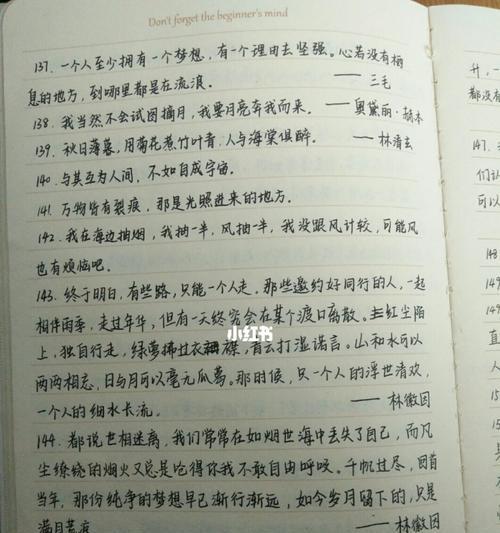 Don't forget the beginner's mind
137. 一个人至少拥有一个梦想，有一个理由去坚强。心若没有栖
息的地方，到哪里都是在流浪。 ——三毛
138. 我当然不会试图摘月，我要月亮奔我而来。 ——奥黛丽·赫本
139. 秋日薄暮，用菊花煮竹叶青，人与海棠俱醉。 ——林清玄
140. 与其互为人间，不如自成宇宙。
141. 万物皆有裂痕，那是光照进来的地方。
142. 我在海边抽烟，我抽一半，风抽一半，我没跟风计较，可能风
也有烦恼吧。
143. 终于明白，有些路，只能一个人走。那些邀约好同行的人，一起
相伴雨季，走过年华，但有一天终究会在某个渡口离散。红尘陌
上，独自行走，绿萝拂过衣襟，青云打湿诺言。山和水可以
两两相忘，日与月可以毫无瓜葛。那时候，只一个人的浮世清欢，
一个人的细水长流。 ——林徽因
144. 都说世相迷离，我们常常在如烟世海中丢失了自己，而凡
尘缭绕的烟火又总是呛得你我不敢自由呼吸。千帆过尽，回首
当年，那份纯净的梦想早已渐行渐远，如今岁月留下的，只是
满目荒痕 ——林徽因
小红书
升，一
都没有
147.
们认
可以
148
149